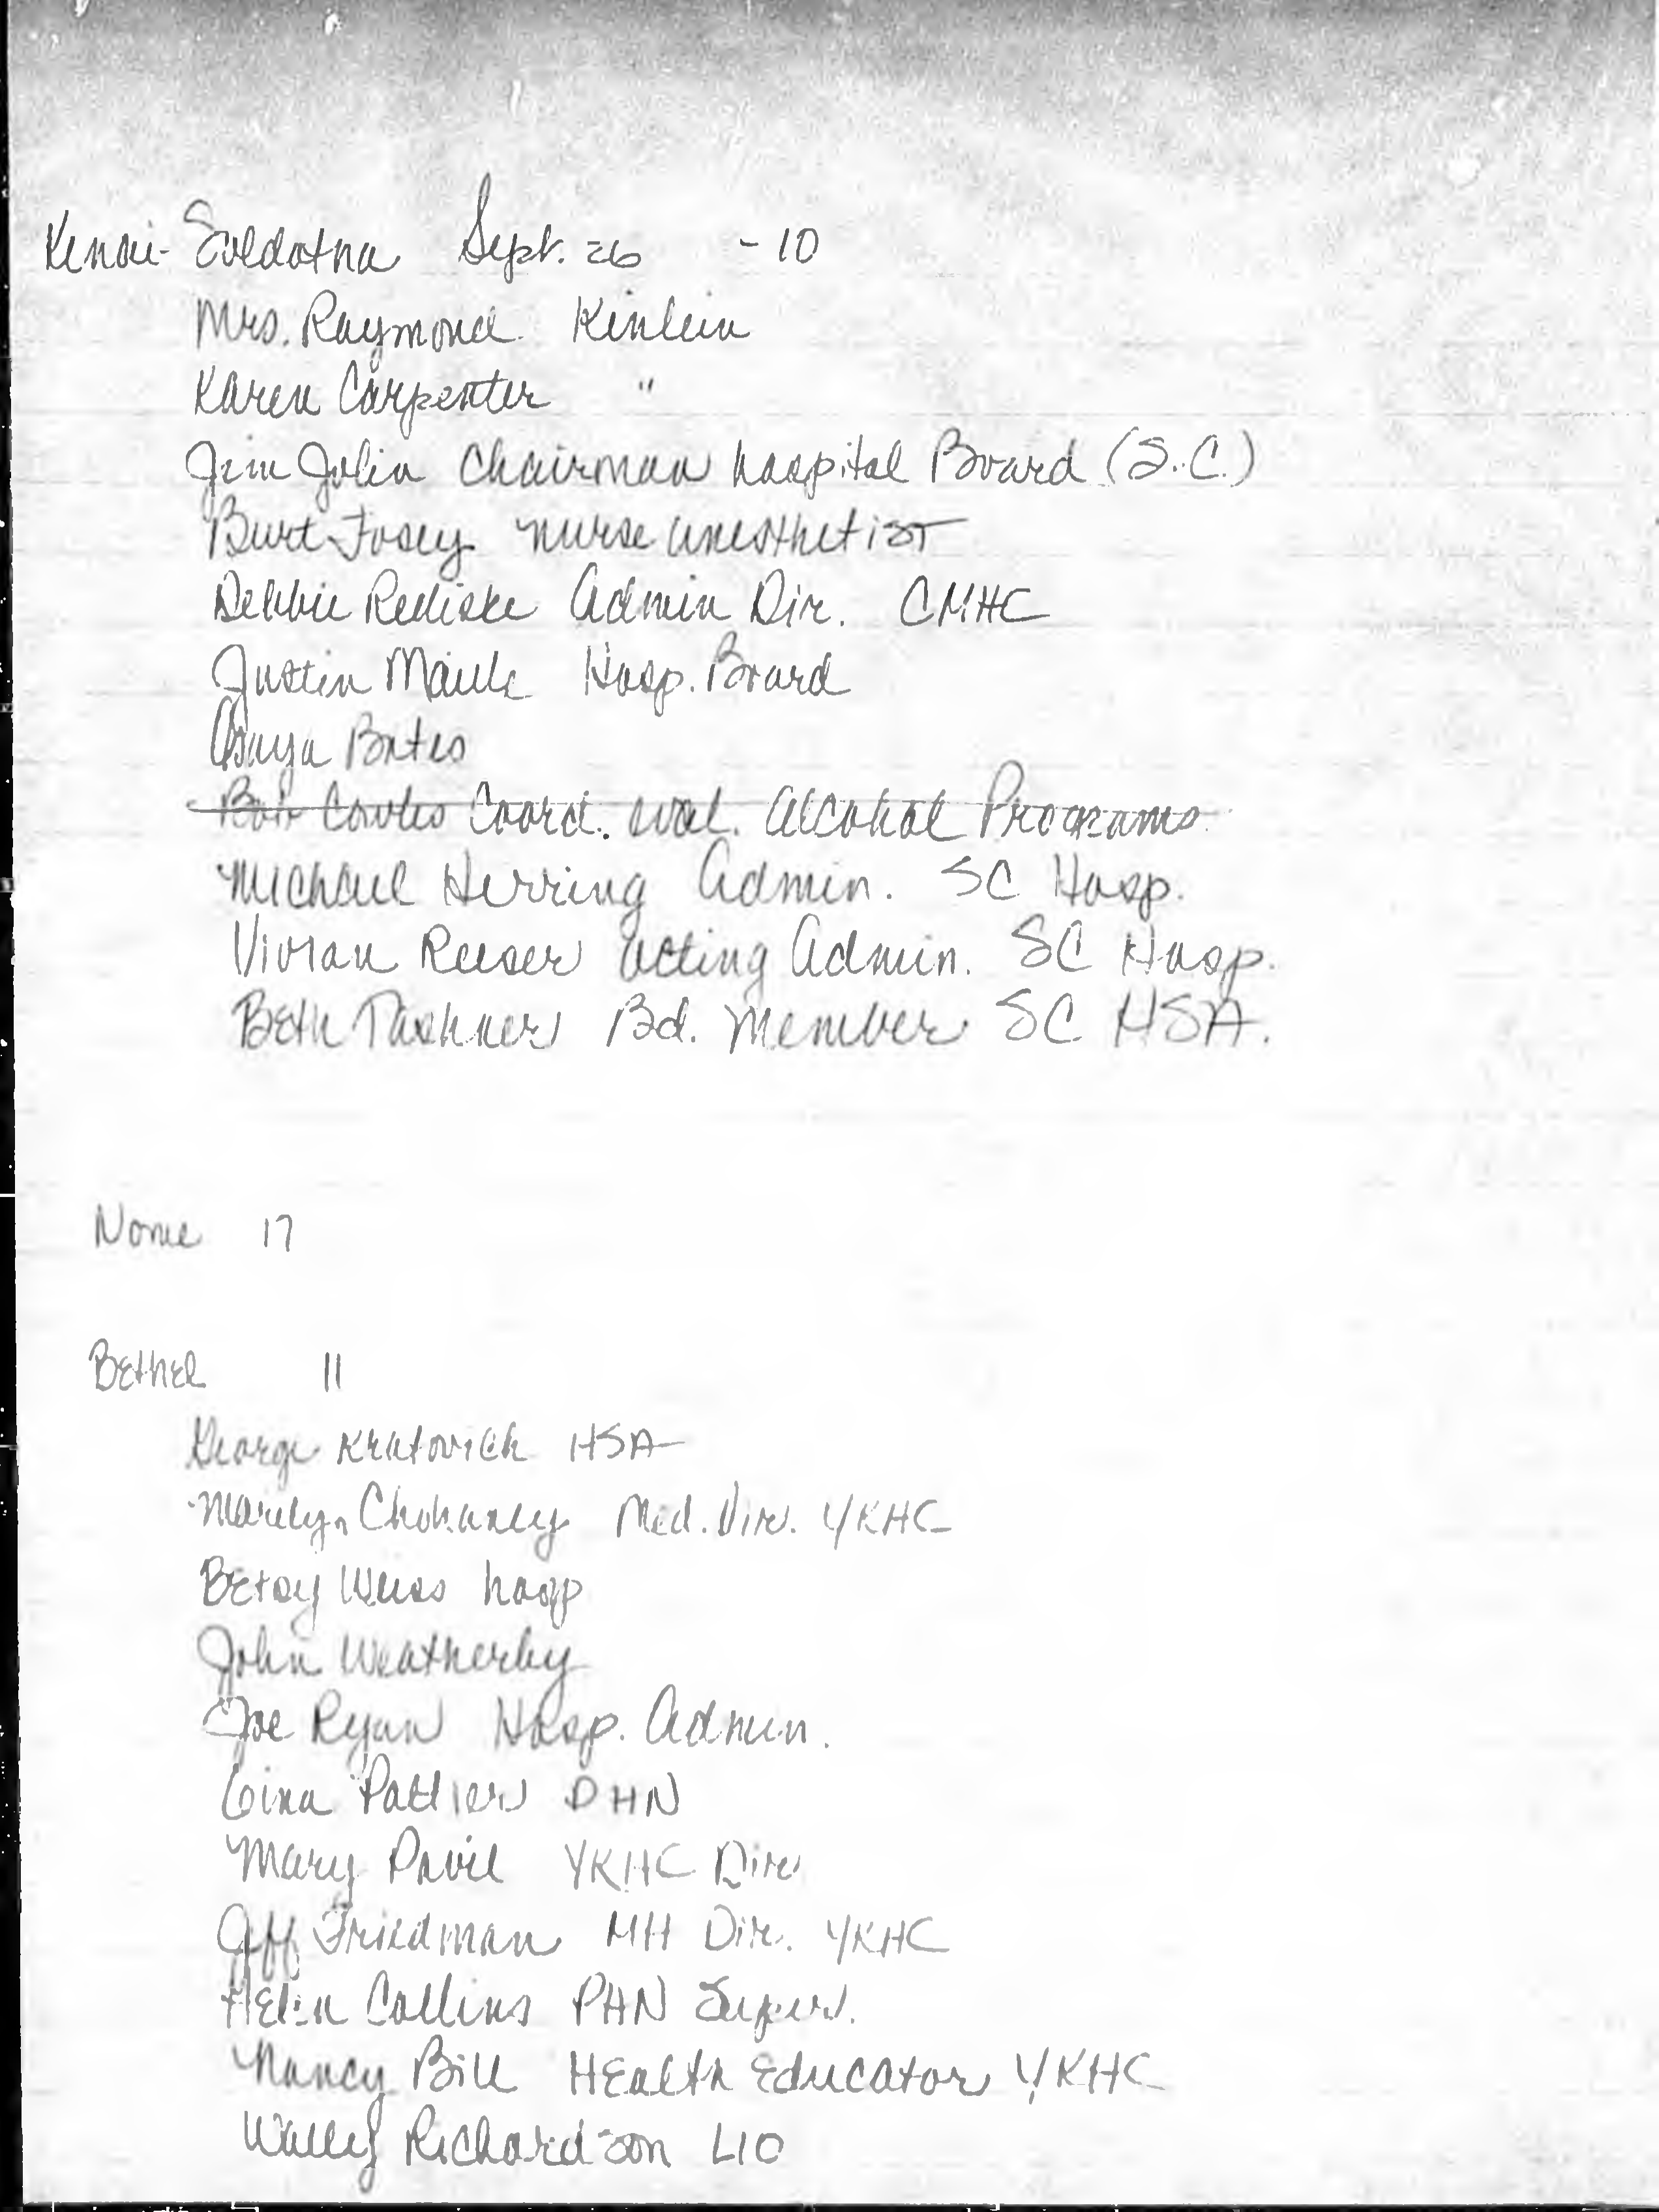 Kenai-Soldotna Sept. 26 -10
Mrs. Raymond Kinlein
Karen Carpenter "
Jim Jolin Chairman hospital Board (S.C.)
Burt Fosey nurse anesthetist
Debbie Rediske Admin Dir. CMHC
Justin Maile Hosp. Board
Bates
Bob Cowles Coord. eval. Alcohol Programs
Michael Herring Admin. SC Hosp.
Vivian Reeser acting Admin. SC Hosp.
Beth Bd. Member SC HSA.
Nome 17
Bethel 11
George Kratovich HSA
Marilyn Med. Dir. YKHC
Betsy Weiss hosp
John Weatherby
Joe Ryan Hosp. Admin.
Gina PHN
Mary Pavil YKHC Dir
Jeff Friedman MH Dir. YKHC
Helen Collins PHN Super.
Nancy Bill Health Educator YKHC
Wally Richardson LIO